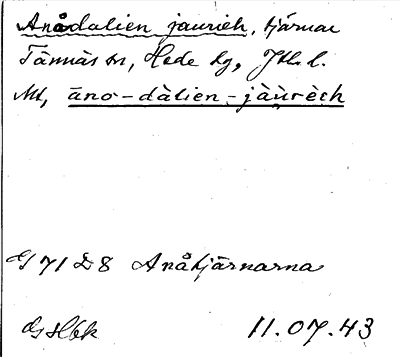 Anådalien jaurieh, tjärnar
Tännäs sn, Hede tg, Jtl. l.
Mt, āno-dàlien-jàùrèch
G 71 D 8 Anåtjärnarna
11.07.43